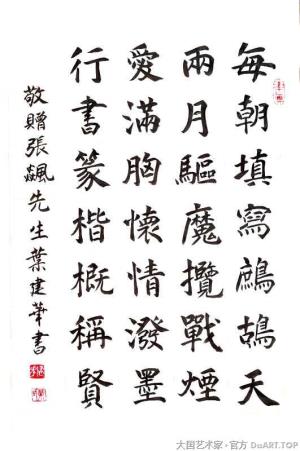 每朝填寫鷓鴣天
兩月驅魔攬戰煙
愛滿胸懷情潑墨
行書篆楷概稱賢
敬贈張飆先生葉建華書
大国艺术家·官方 DaART.TOP